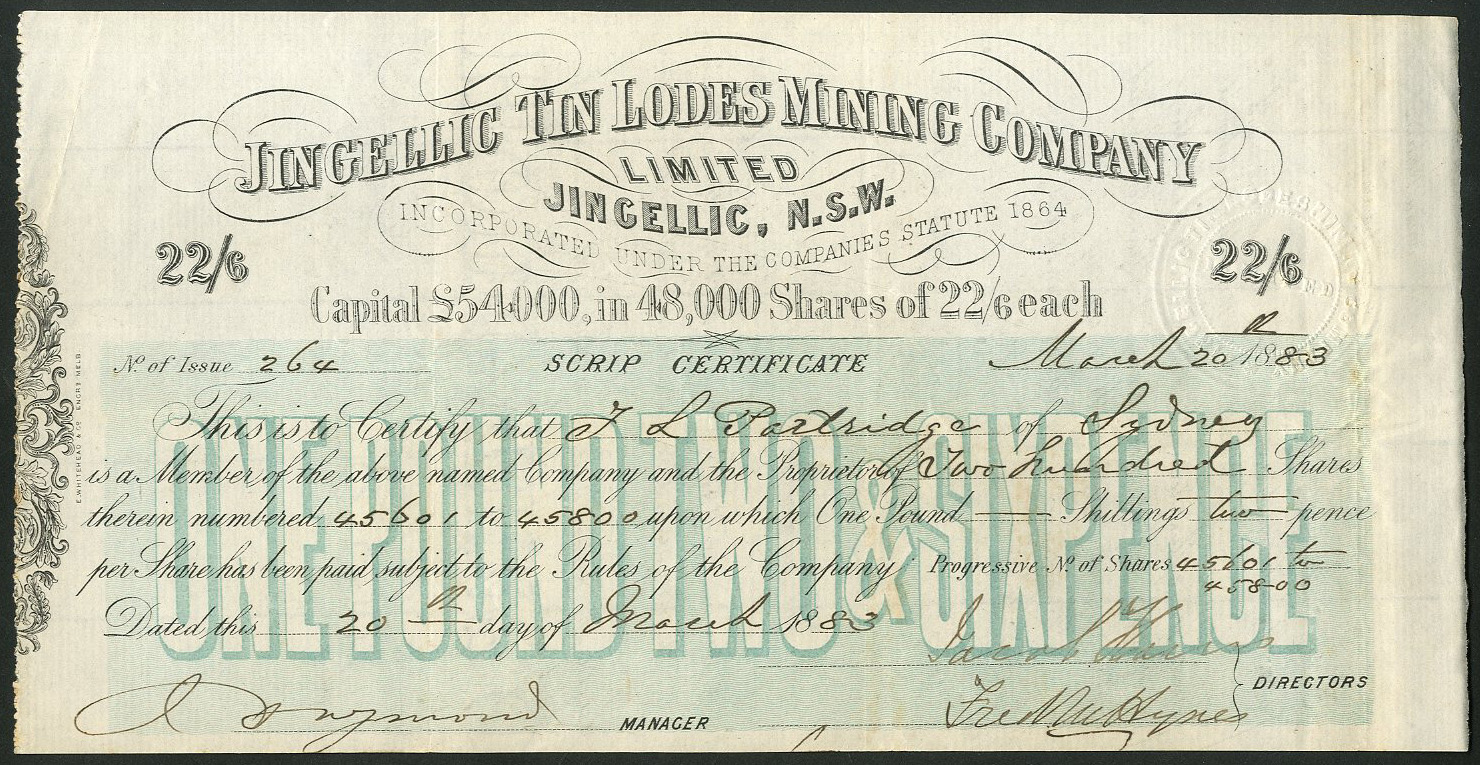 JINGELLIC TIN LODES MINING COMPANY
LIMITED
JINGELLIC, N.S.W.
INCORPORATED UNDER THE COMPANIES STATUTE 1864
22/6 22/6
Capital £54000, in 48,000 Shares of 22/6 each
No. of Issue 264 SCRIP CERTIFICATE March 20th 1883
This is to Certify that L Partridge of Sydney
is a Member of the above named Company and the Proprietor of Two hundred Shares
therein numbered 45601 to 45800 upon which One Pound Shillings two pence
per Share has been paid subject to the Rules of the Company Progressive No. of Shares 45601 to
45800
Dated this 20th day of March 1883
ONE POUND TWO & SIXPENCE
Jacob
DIRECTORS
MANAGER Hynes
E. WHITEHEAD & CO. ENGRS MELB.